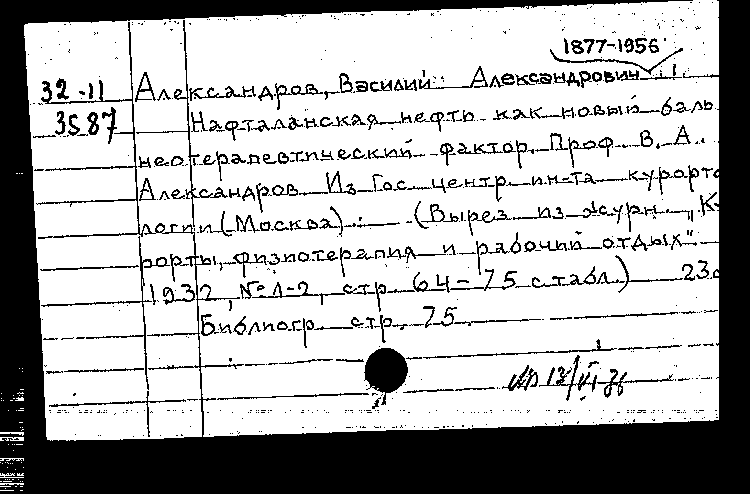 1877-1956
32-11 Александров, Василий Александрович
3587 Нафталанская нефть как новый баль
неотерапевтический фактор. Проф. В. А.
Александров. Из Гос. центр. ин-та курорто
логии (Москва). (Вырез. из журн. "К
рорты, физиотерапия и рабочий отдых".
1932, № 1-2, стр. 64-75 с табл.) 23с
Библиогр. стр. 75.
13/VI-76